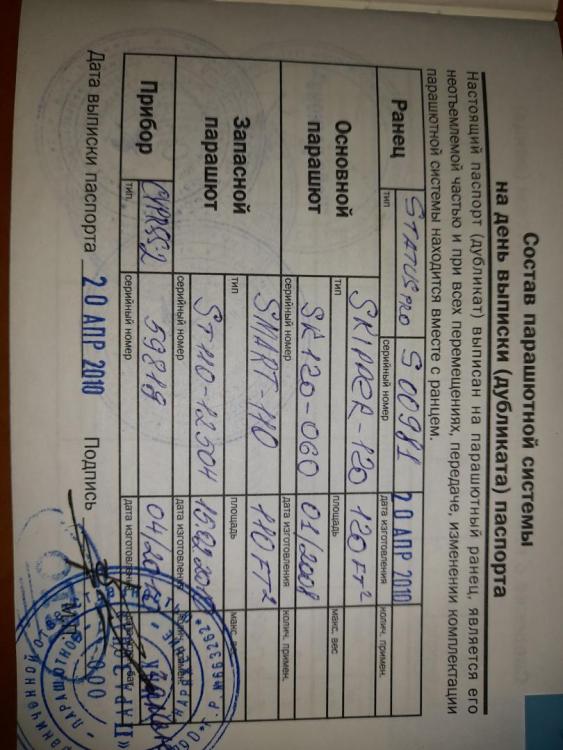 Состав парашютной системы
на день выписки (дубликата) паспорта
Настоящий паспорт (дубликат) выписан на парашютный ранец, является его
неотъемлемой частью и при всех перемещениях, передаче, изменении комплектации
парашютной системы находится вместе с ранцем.
Ранец STATUS PRO S 00981 20 АПР 2010
тип серийный номер дата изготовления колич. примен.
Основной парашют SKIPPER-120 120 FT²
тип площадь макс. вес
SK120-060 01/2008
серийный номер дата изготовления колич. примен.
Запасной парашют SMART-110 110 FT²
тип площадь макс. вес
ST110-12504
серийный номер дата изготовления
Прибор CYPRES-2 59819
тип серийный номер дата изготовления
Дата выписки паспорта 20 АПР 2010 Подпись М.П.